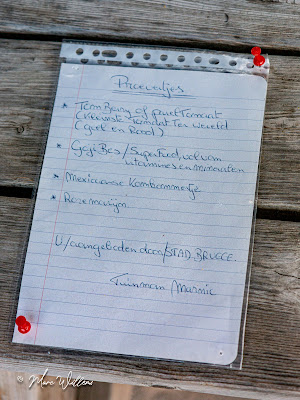 Proevertjes
* Tom Berry of pruet Tomaat
(kleinste Tomaat Ter Wereld
(geel en Rood)
* Goji Bes / Superfood, vol van
vitamines en mineralen
* Mexicaanse Komkommertje
* Rozemarijn
U/aangeboden door/STAD BRUGGE.
Tuinman Marnic
© Marc Willems